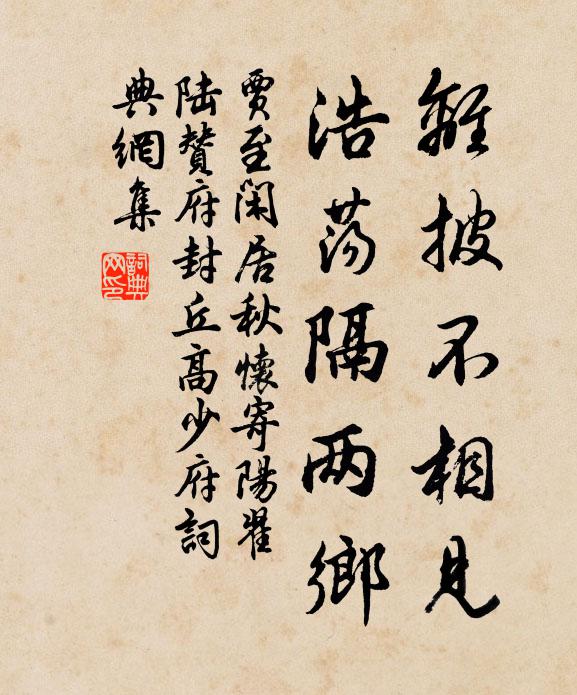 離披不相見
浩荡隔两鄉
賈至閑居秋懷寄陽翟
陸贊府封丘高少府詞
典網集
詞典網印